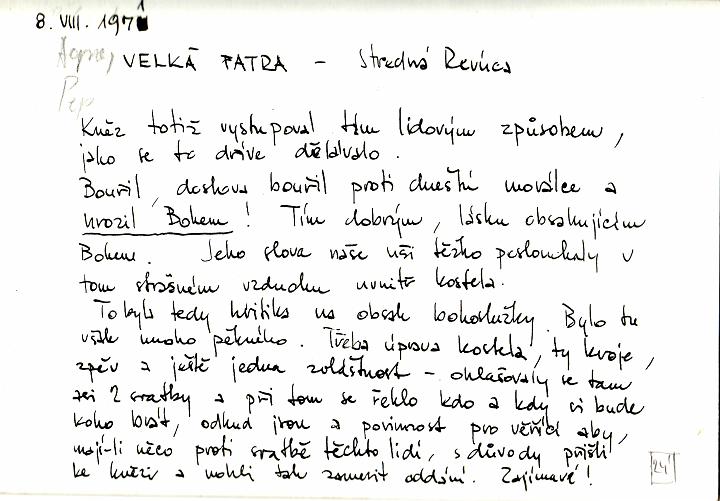 8. VIII. 1971
VELKÁ FATRA - Stredná Revúca
Kněz totiž vystupoval tím lidovým způsobem,
jako se to dříve dělávalo.
Bouřil, doslova bouřil proti dnešní morálce a
hrozil Bohem! Tím dobrým, lásku obsahujícím
Bohem. Jeho slova naše uši těžko poslouchaly v
tom strašném vzduchu uvnitř kostela.
To byla tedy kritika na obsah bohoslužby. Bylo tu
však mnoho pěkného. Třeba úprava kostela, ty kroje,
zpěv a ještě jedna zvláštnost - ohlašovaly se tam
asi 2 svatby a při tom se řeklo kdo a kdy si bude
koho brát, odkud jsou a povinnost pro věřící aby,
mají-li něco proti svatbě těchto lidí, s důvody přišli
ke knězi a mohli tak zamezit oddání. Zajímavé!
24